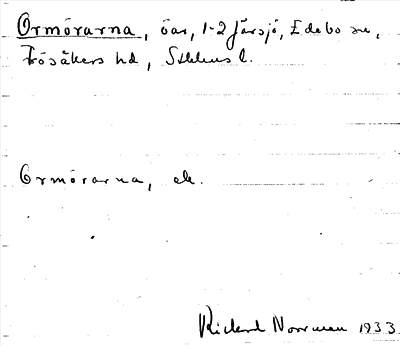 Ormörarna, öar, 1-2 Järsjö, Edebo sn,
Frösåkers hd, Sthlms l.
Ormörarna, ek.
Rickard Norrman 1933